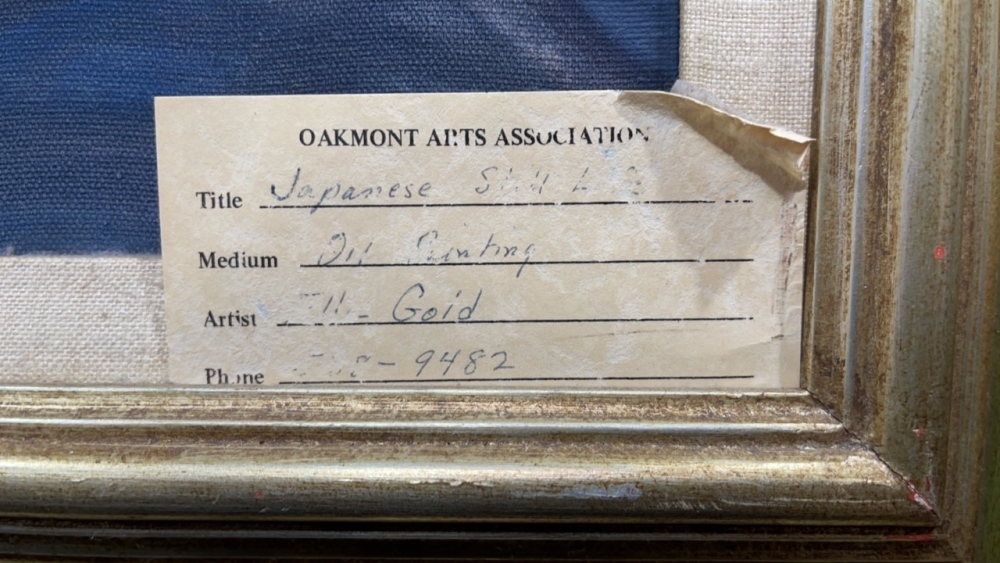 OAKMONT ARTS ASSOCIATION
Title Japanese Still Life
Medium Oil Painting
Artist Gold
Phone 9482